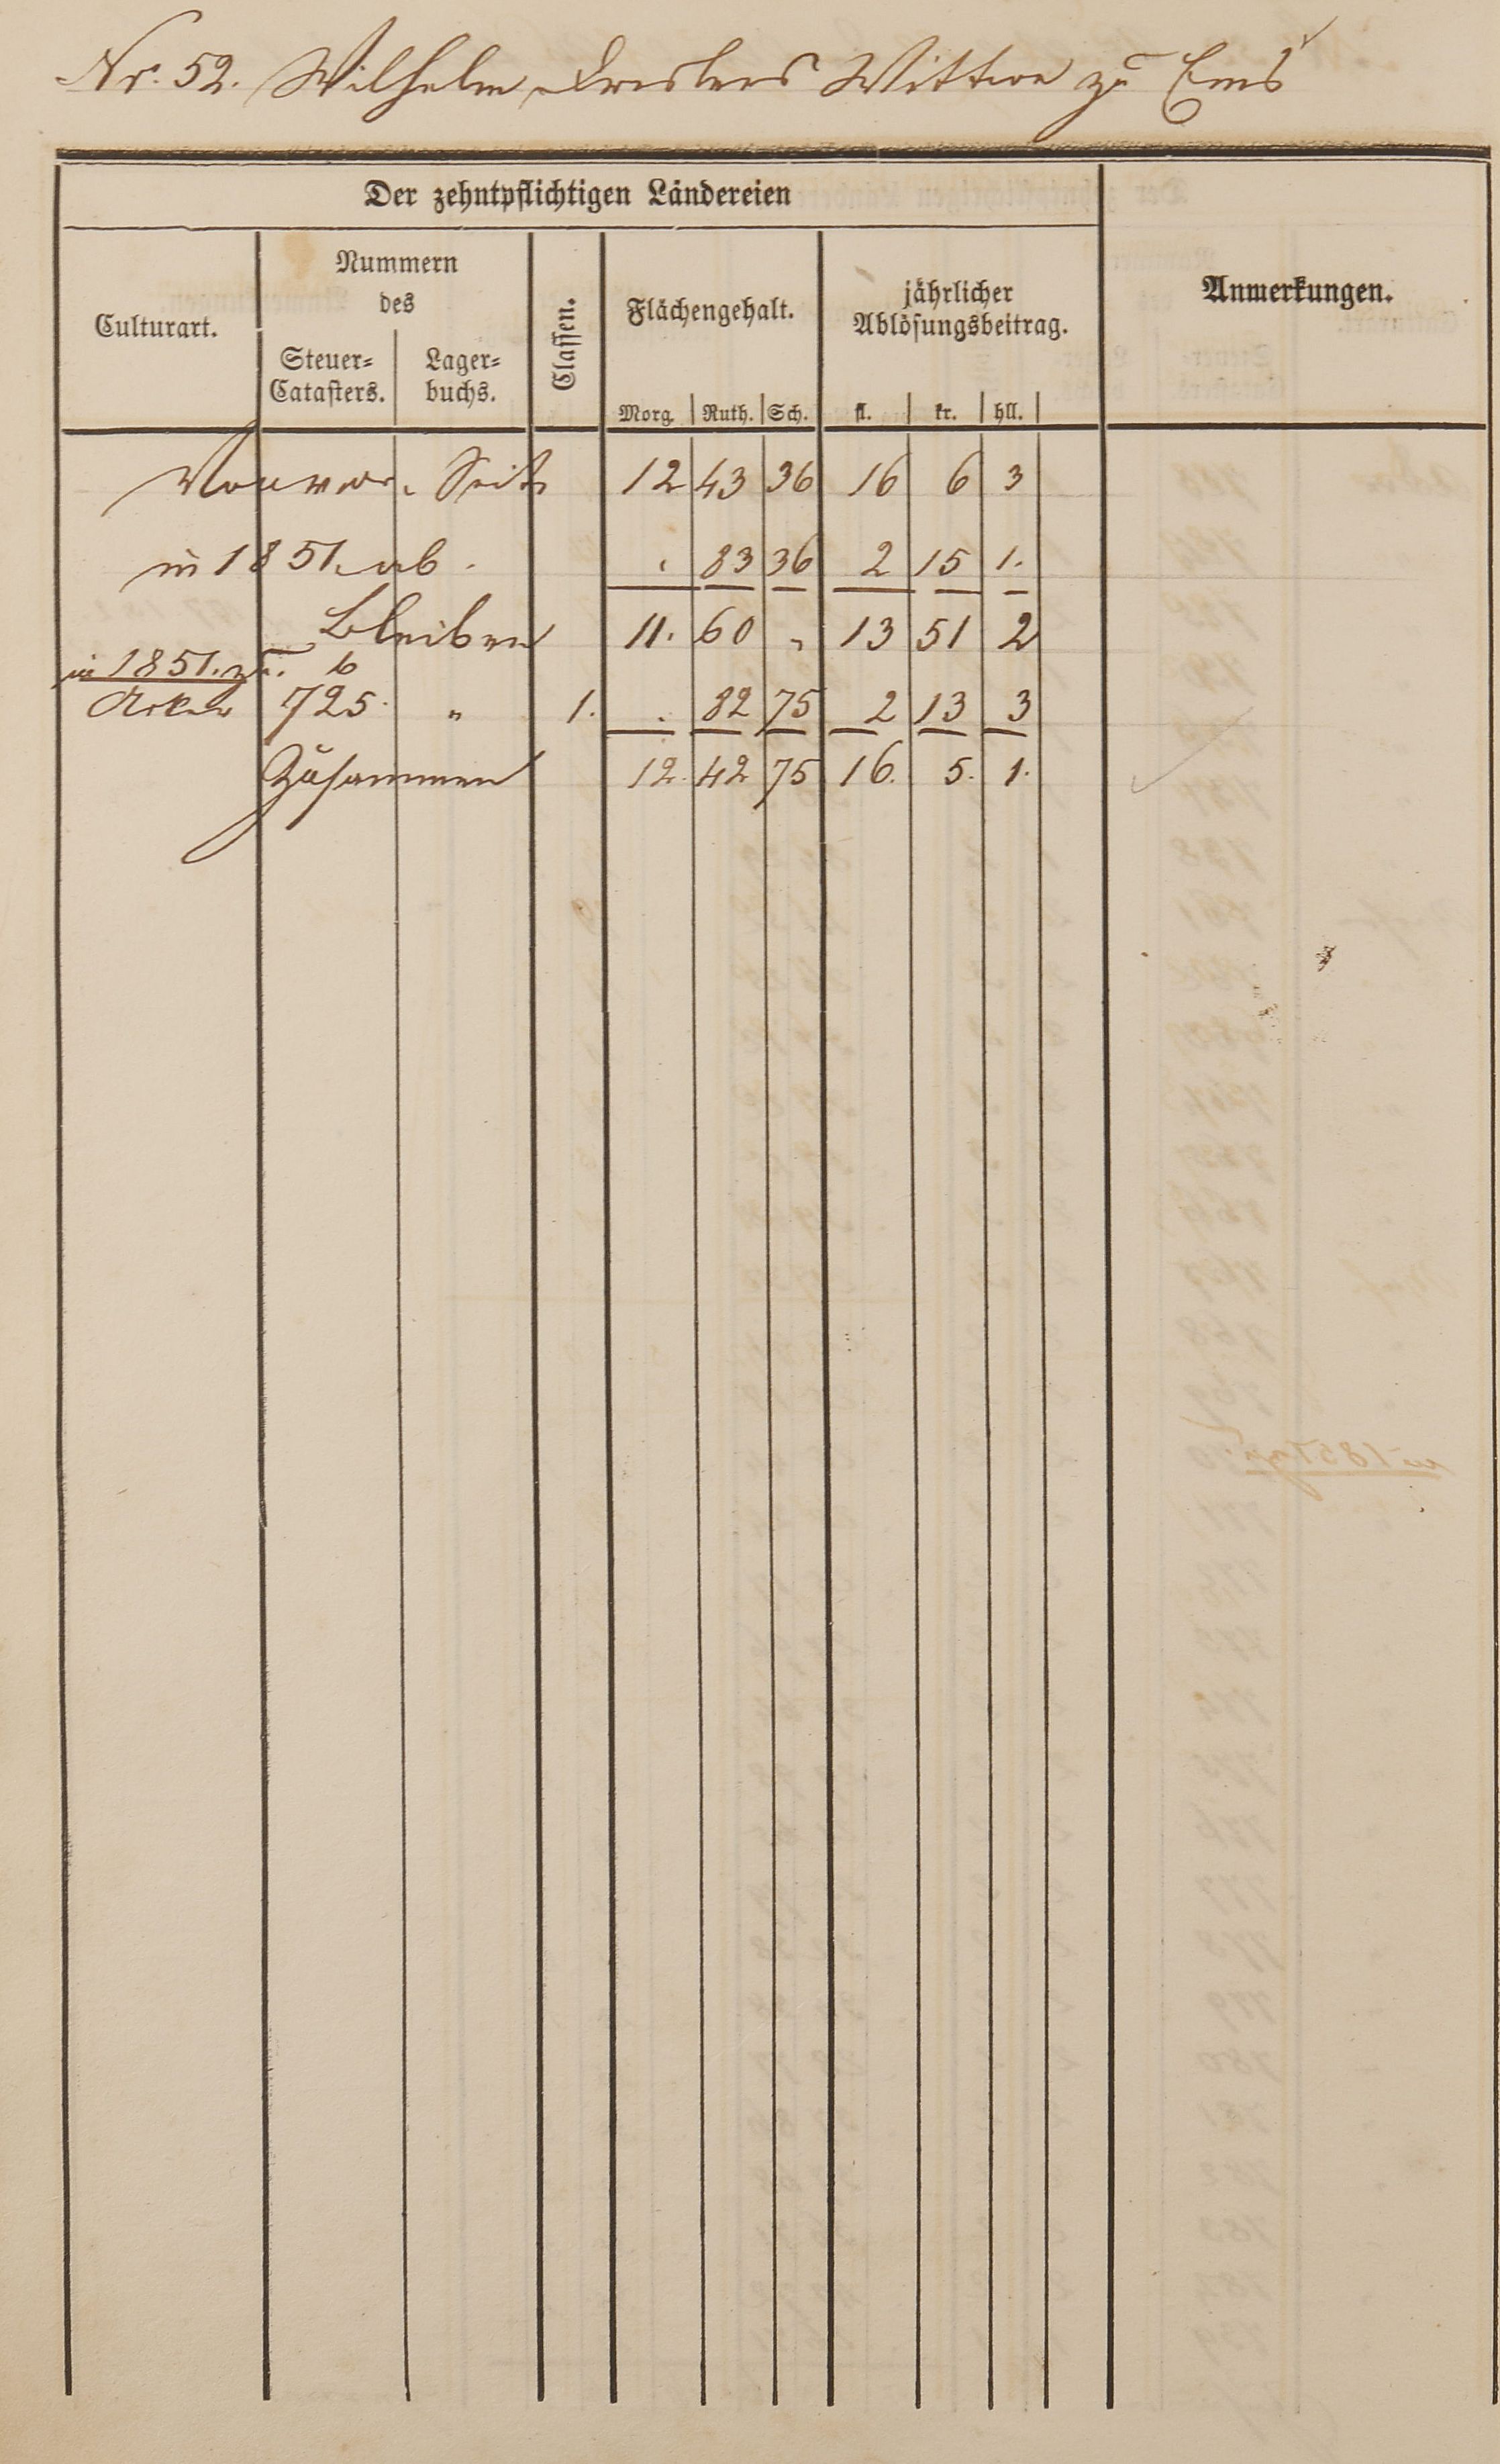 Nr. 52. Wilhelm Wittwe zu Ems
Der zehntpflichtigen Ländereien
Culturart.
Nummern
des
Steuer=
Catasters.
Lager=
buchs.
Classen.
Flächengehalt.
Morg. Ruth. Sch.
jährlicher
Ablösungsbeitrag.
fl. kr. hll.
Anmerkungen.
Von vor. Seite 12 43 36 16 6 3
in 1851. ab. . 83 36 2 15 1.
Bleiben 11. 60 „ 13 51 2
in 1851. zu. b
Acker 725. „ 1. . 82 75 2 13 3
Zusammen 12. 42 75 16. 5. 1.